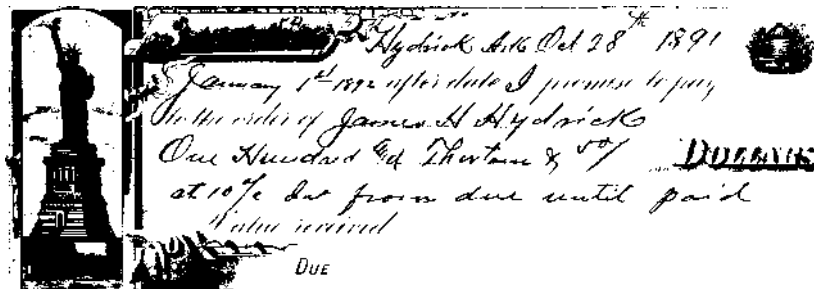 Hydrick Ark Oct 28th 1891
January 1st 1892 after date I promise to pay
to the order of James H Hydrick
One Hundred & Thirteen & 50/ DOLLARS
at 10% Int from due until paid
Value received
DUE